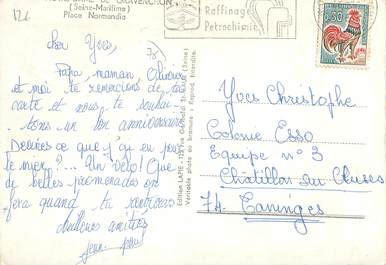 GRAVENCHON
(Seine-Maritime)
Place Normandie
Raffinage
Pétrochimie
0,30
Cher Yves,
Papa, maman, Olivier
et moi te remercions de ta
carte et nous te souhai-
tons un bon anniversaire
Devines ce que j'ai eu pour
le mien ?... Un vélo! Que
de belles promenades on
fera quand tu rentreras
amitiés
Jean-Paul
Edition LAPIE
Véritable photo au bromure - Reprod. Interdite.
Yves Christophe
Colonie Esso
Equipe n° 3
Châtillon sur Cluses
74. Taninges